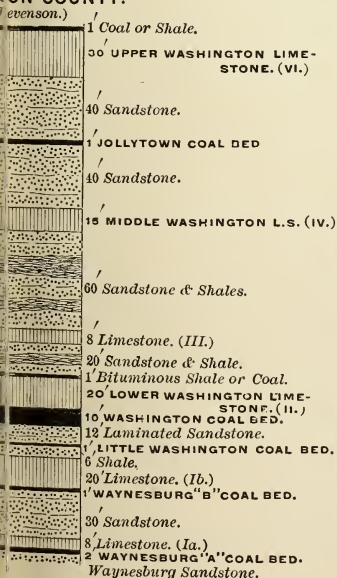 ON COUNTY.
evenson.)
1' Coal or Shale.
30' UPPER WASHINGTON LIME-
STONE. (VI.)
40' Sandstone.
1' JOLLYTOWN COAL BED
40' Sandstone.
15' MIDDLE WASHINGTON L.S. (IV.)
60' Sandstone & Shales.
8' Limestone. (III.)
20' Sandstone & Shale.
1' Bituminous Shale or Coal.
20' LOWER WASHINGTON LIME-
STONE. (II.)
10' WASHINGTON COAL BED.
12' Laminated Sandstone.
1' LITTLE WASHINGTON COAL BED.
6' Shale,
20' Limestone. (Ib.)
1' WAYNESBURG "B" COAL BED.
30' Sandstone.
8' Limestone. (Ia.)
2' WAYNESBURG "A" COAL BED.
Waynesburg Sandstone.